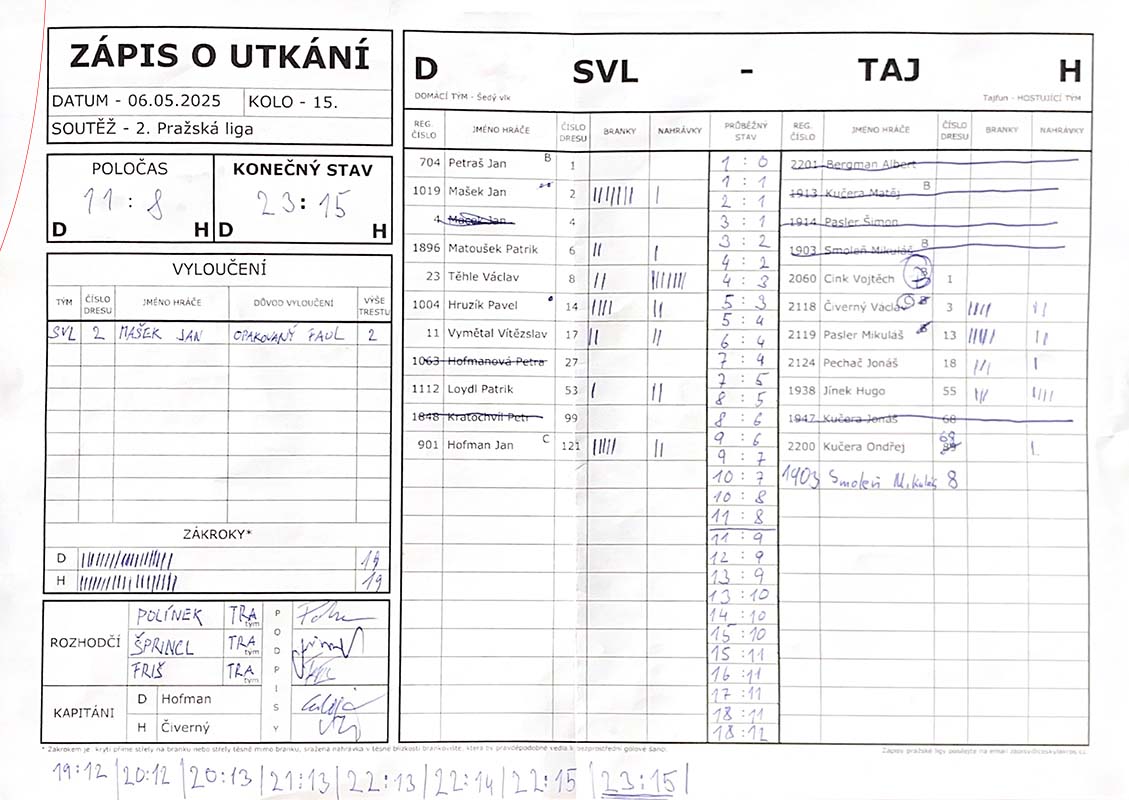 ZÁPIS O UTKÁNÍ
DATUM - 06.05.2025 KOLO - 15.
SOUTĚŽ - 2. Pražská liga
POLOČAS KONEČNÝ STAV
11 : 8 23 : 15
D H D H
VYLOUČENÍ
TÝM ČÍSLO DRESU JMÉNO HRÁČE DŮVOD VYLOUČENÍ VÝŠE TRESTU
SVL 2 MAŠEK JAN OPAKOVANÝ FAUL 2
ZÁKROKY*
D
H 19
ROZHODČÍ
POLÍNEK TRA tým
ŠPRINCL TRA tým
FRIŠ TRA tým
PODPISY
KAPITÁNI
D Hofman
H Čiverný
D SVL - TAJ H
DOMÁCÍ TÝM - Šedý vlk Tajfun - HOSTUJÍCÍ TÝM
REG. ČÍSLO JMÉNO HRÁČE ČÍSLO DRESU BRANKY NAHRÁVKY PRŮBĚŽNÝ STAV REG. ČÍSLO JMÉNO HRÁČE ČÍSLO DRESU BRANKY NAHRÁVKY
704 Petraš Jan B 1 1 : 0 2201 Bergman Albert
1019 Mašek Jan 2 1 : 1 1913 Kučera Matěj B
2 : 1
4 Macek Jan 4 3 : 1 1914 Pasler Šimon
1896 Matoušek Patrik 6 3 : 2 1903 Smoleň Mikuláš B
4 : 2
23 Těhle Václav 8 4 : 3 2060 Cink Vojtěch B 1
1004 Hruzík Pavel 14 5 : 3 2118 Čiverný Václav 3
5 : 4
11 Vymětal Vítězslav 17 6 : 4 2119 Pasler Mikuláš 13
1063 Hofmanová Petra 27 7 : 4 2124 Pechač Jonáš 18
7 : 5
1112 Loydl Patrik 53 8 : 5 1938 Jínek Hugo 55
1848 Kratochvíl Petr 99 8 : 6 1947 Kučera Jonáš 68
9 : 6
901 Hofman Jan C 121 9 : 7 2200 Kučera Ondřej 68
10 : 7 1903 Smoleň Mikuláš 8
10 : 8
11 : 8
11 : 9
12 : 9
13 : 9
13 : 10
14 : 10
15 : 10
15 : 11
16 : 11
17 : 11
18 : 11
18 : 12
* Zákrokem je krytí přímé střely na branku nebo střely těsně mimo branku, sražená nahrávka v těsné blízkosti brankoviště, která by pravděpodobně vedla k bezprostřední gólové šanci.
19:12 | 20:12 | 20:13 | 21:13 | 22:13 | 22:14 | 22:15 | 23:15 |